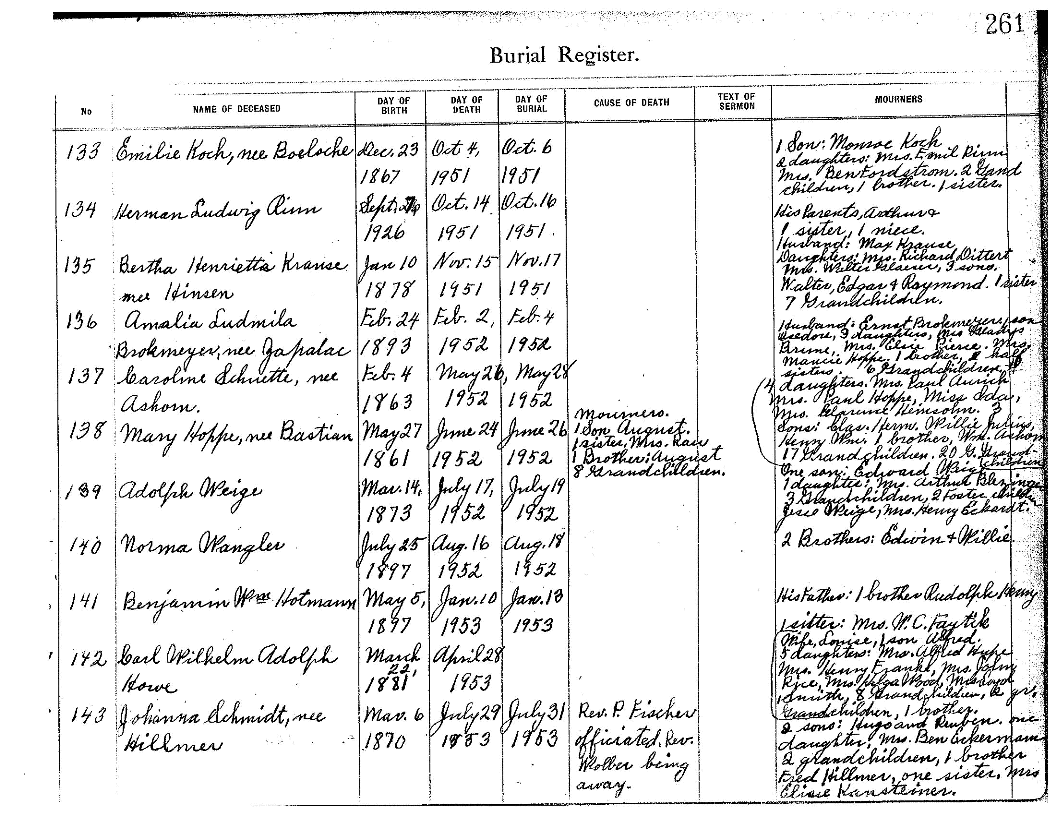 261
Burial Register.
No NAME OF DECEASED DAY OF BIRTH DAY OF DEATH DAY OF BURIAL CAUSE OF DEATH TEXT OF SERMON MOURNERS
133 Emilie Koch, nee Boelsche Dec. 23 Oct 4, Oct. 6
1867 1951 1951
1 Son: Monroe Koch
2 daughters: Mrs. Emil Rinn
Mrs. Ben Fordstrom. 2 Gand
children, 1 brother. 1 sister.
134 Herman Ludwig Rinn Sept. 26 Oct. 14 Oct. 16
1926 1951 1951.
His Parents, Arthur &
1 sister, 1 niece.
135 Bertha Henrietta Krause Jan 10 Nov. 15 Nov. 17
nee Hinsen 1878 1951 1951
Husband: Max Krause
Daughters: Mrs. Richard Dittert
Mrs. Walter Glaeser, 3 sons.
Walter, Edgar & Raymond. 1 sister
7 Grandchildren.
136 Amalia Ludmila Feb. 24 Feb. 2, Feb. 4
Brokmeyer, nee Zapalac 1893 1952 1952
Husband: Ernst Brokmeyer, son
Isedore, 3 daughters, Mrs Gladys
Brune, Mrs. Elsie Pierce. Mrs.
Maurice Hoppe. 1 brother, 2 half
sisters. 6 Grandchildren,
137 Caroline Schuette, nee Feb. 4 May 26, May 28
Ashorn. 1863 1952 1952
4 daughters. Mrs. Paul Aurich
Mrs. Paul Hoppe, Miss Ida,
Mrs. Clarence Hinsohn. 3
Sons: Chas. Herm. Willie Julius,
Henry Wm. 1 brother, Wm. Ashorn
17 Grandchildren. 20 G. Grand
children
138 Mary Hoppe, nee Bastian May 27 June 24 June 26
1861 1952 1952
Mourners.
1 Son August.
1 sister, Mrs. Rau
1 Brother: August
8 Grandchildren.
139 Adolph Weige Mar. 14, July 17, July 19
1873 1952 1952
One son: Edward Weige
1 daughter: Mrs. Arthur
3 Grandchildren, 2 Foster
Jesse Weige, Mrs. Henry Eckardt.
140 Norma Wangler July 25 Aug. 16 Aug. 18
1897 1952 1952
2 Brothers: Edwin & Willie
141 Benjamin Wm Hotmann May 5, Jan. 10 Jan. 13
1877 1953 1953
His Father: 1 brother Rudolph Henry
1 sister: Mrs. W. C. Faytik
142 Carl Wilhelm Adolph March April 28
Howe 22, 1881 1953
Wife, Louise, 1 son Alfred.
5 daughters: Mrs. Alfred
Mrs. Henry Franke, Mrs. John
Rice, Mrs. Helga Wood, Mrs Loyd
Smith, 8 Grandchildren, 2 gr.
Grandchildren, 1 brother.
143 Johanna Schmidt, nee Mar. 6 July 29 July 31
Hillmer 1870 1953 1953
Rev. P. Fischer
officiated, Rev.
Wolber being
away.
2 sons: Hugo and Reuben. one
daughter, Mrs. Ben Eckermann
2 grandchildren, 1 brother
Fred Hillmer, one sister, Mrs
Elisie Kansteiner.